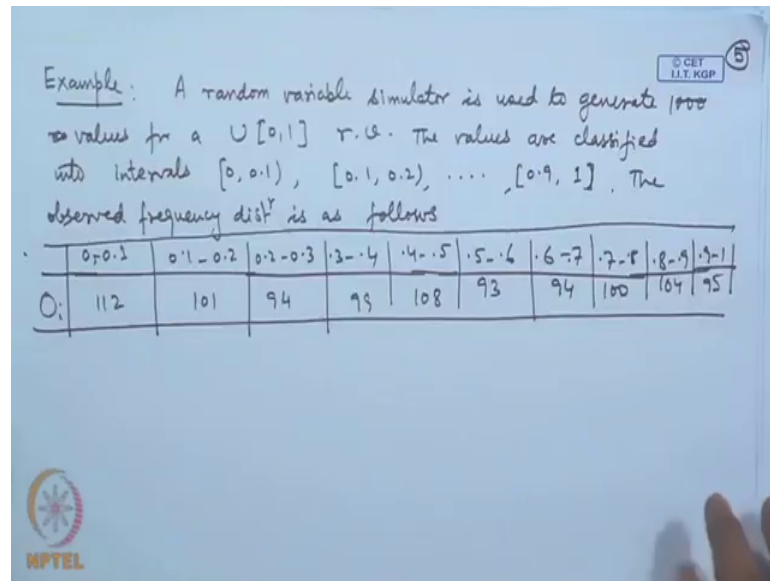 © CET
I.I.T. KGP
5
Example: A random variable simulator is used to generate 1000
values for a U[0,1] r.v. The values are classified
into intervals [0, 0.1), [0.1, 0.2), ...., [0.9, 1]. The
observed frequency distⁿ is as follows
0-0.1 0.1-0.2 0.2-0.3 .3-.4 .4-.5 .5-.6 .6-.7 .7-.8 .8-.9 .9-1
Oi 112 101 94 99 108 93 94 100 104 95
NPTEL